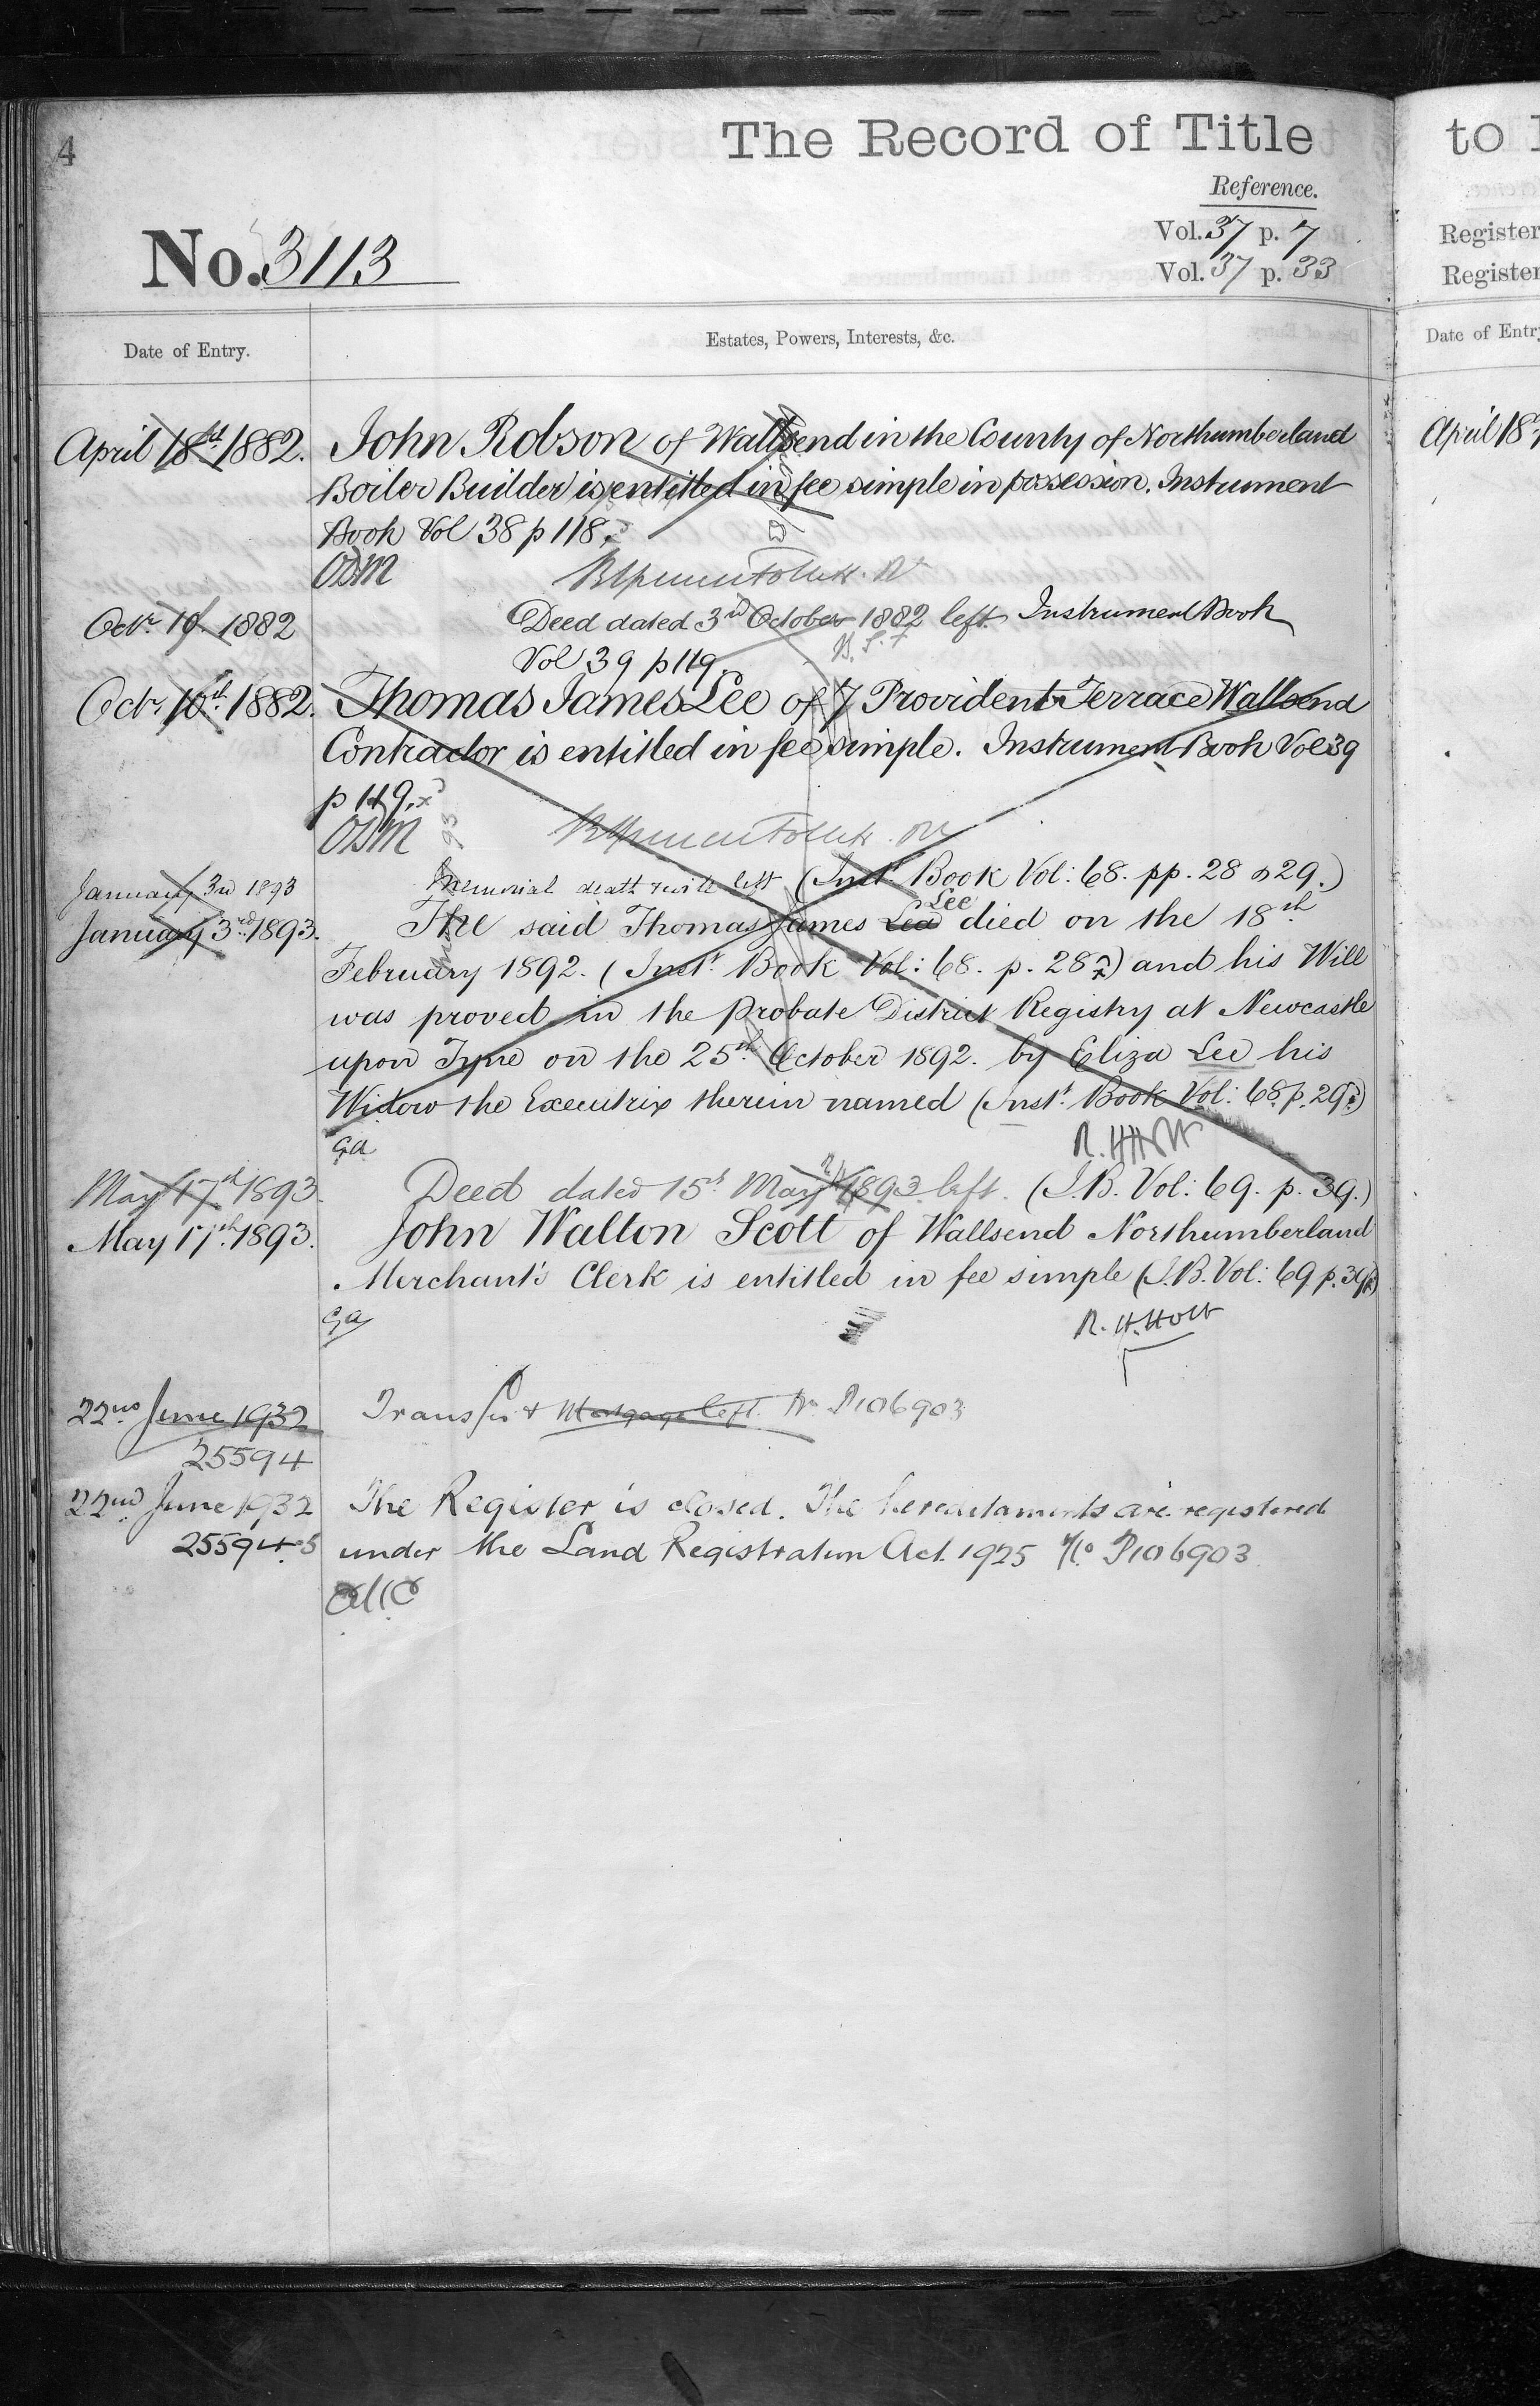 4
The Record of Title
Reference.
Vol. 37 p. 7
Vol. 37 p. 33
No. 3113
Date of Entry.
Estates, Powers, Interests, &c.
April 18th 1882.
John Robson of Wallsend in the County of Northumberland
Boiler Builder is entitled in fee simple in possession. Instrument
Book Vol 38 p 118.
Octr. 10. 1882
Deed dated 3rd October 1882 left. Instrument Book
Vol 39 p 119.
Octr. 10th 1882.
Thomas James Lee of 7 Provident Terrace Wallsend
Contractor is entitled in fee simple. Instrument Book Vol 39
p 119.
January 3rd 1893
Memorial death & will left (Instt. Book Vol: 68. pp. 28 & 29.)
January 3rd 1893.
The said Thomas James Lea Lee died on the 18th
February 1892. (Instt. Book Vol: 68. p. 28) and his Will
was proved in the Probate District Registry at Newcastle
upon Tyne on the 25th October 1892. by Eliza Lee his
Widow the Executrix therein named (Instt. Book Vol: 68. p. 29)
R. H. Holt
May 17th 1893.
Deed dated 15th May 1893 left. (I.B. Vol: 69. p. 39.)
May 17th 1893.
John Walton Scott of Wallsend Northumberland
Merchant's Clerk is entitled in fee simple (I.B. Vol: 69 p. 39)
R. H. Holt
22nd June 1932
25594
Transfer & Mortgage left. No. P106903
22nd June 1932
25594-5
The Register is closed. The hereditaments are registered
under the Land Registration Act. 1925 No. P106903
to
Register
Register
Date of Entry
April 18